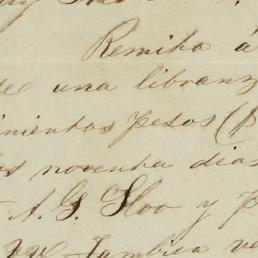 Remita á
de una libranz
inientos pesos (p
os noventa dias
A. G. Sloo y p
Tambien ve